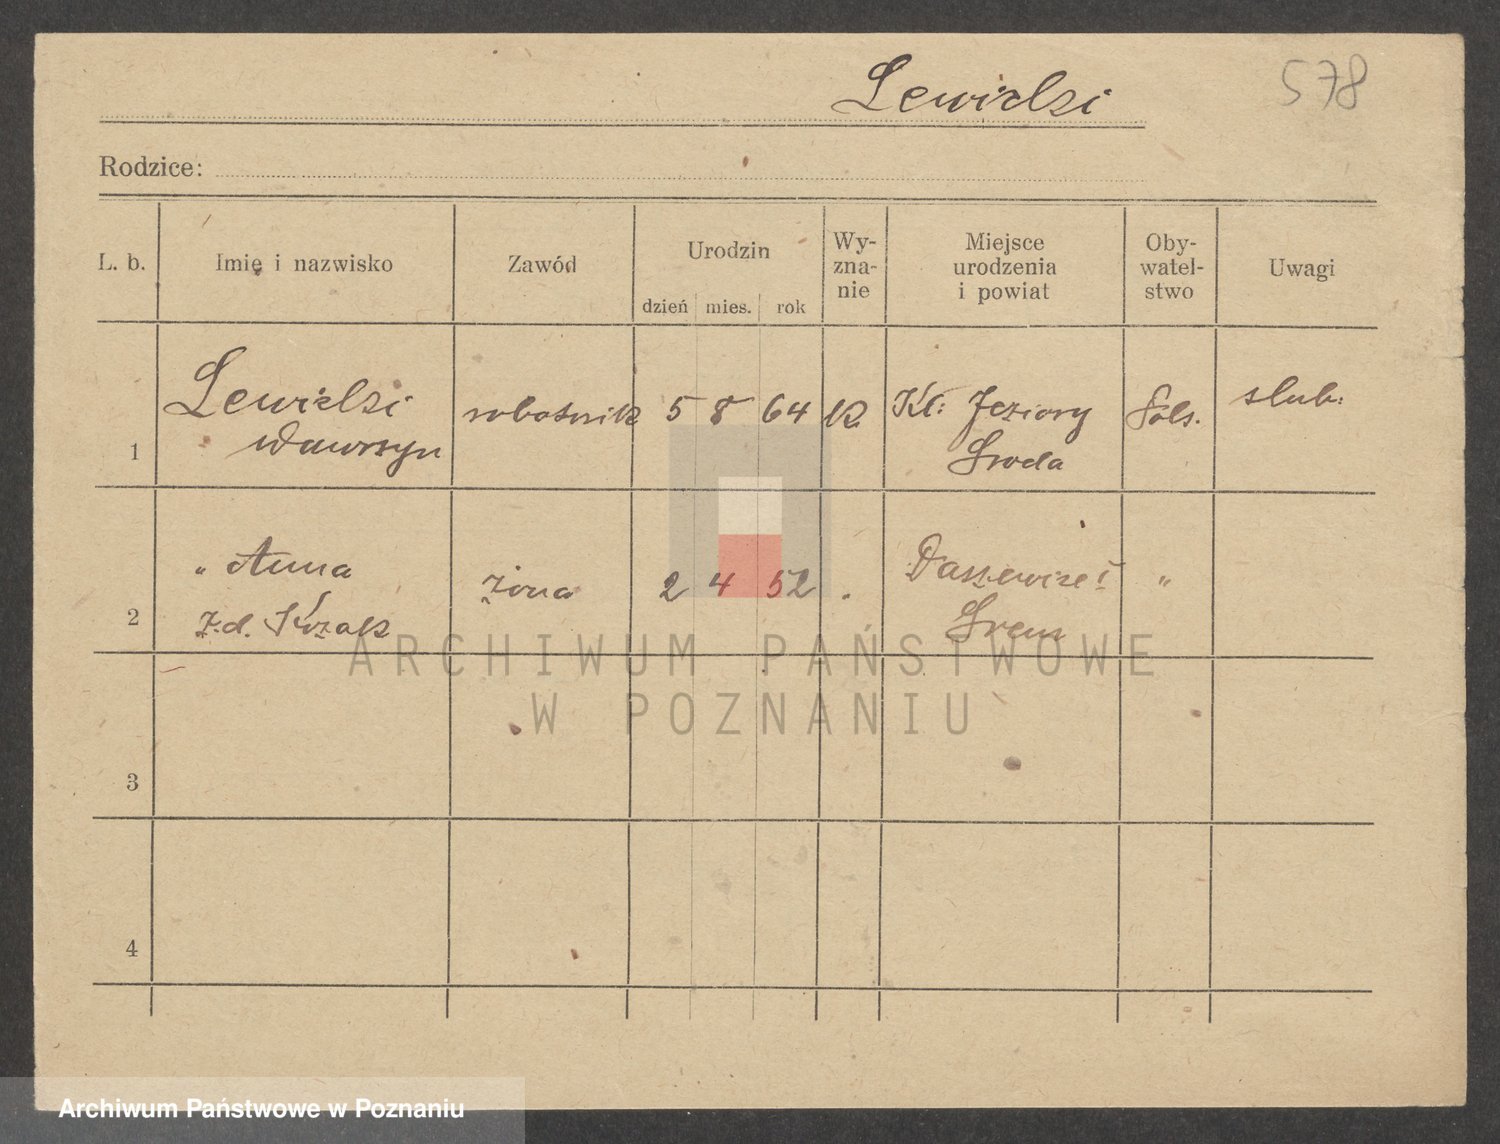 Lewicki
578
Rodzice:
L. b.
Imię i nazwisko
Zawód
Urodzin
dzień mies. rok
Wy-
zna-
nie
Miejsce
urodzenia
i powiat
Oby-
watel-
stwo
Uwagi
1
Lewicki
Wawrzyn
robotnik
5 8 64
k.
Kl: Jeziory
Sroda
Pols.
slub:
2
" Anna
z d. Kozak
żona
2 4 52
"
Srem
"
3
4
ARCHIWUM PAŃSTWOWE
W POZNANIU
Archiwum Państwowe w Poznaniu